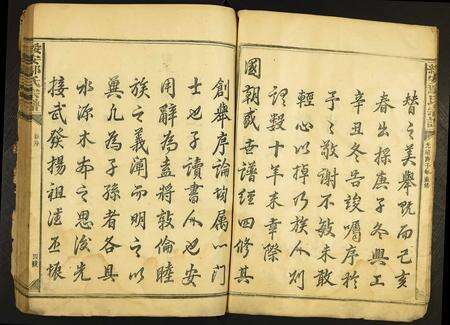 替之美舉既而己亥
春出採庚子冬興工
辛丑冬告竣囑序於
予予敬謝不敏未敢
輕心以掉乃族人別
謬數十年未幸際
國朝咸譜經四修其
創舉序論均属一門
士也子讀書人也安
用辭為盖將敦倫睦
族之義闡而明之以
冀凡為子孫者各具
水源木本之思後先
接武發揚祖德丕振